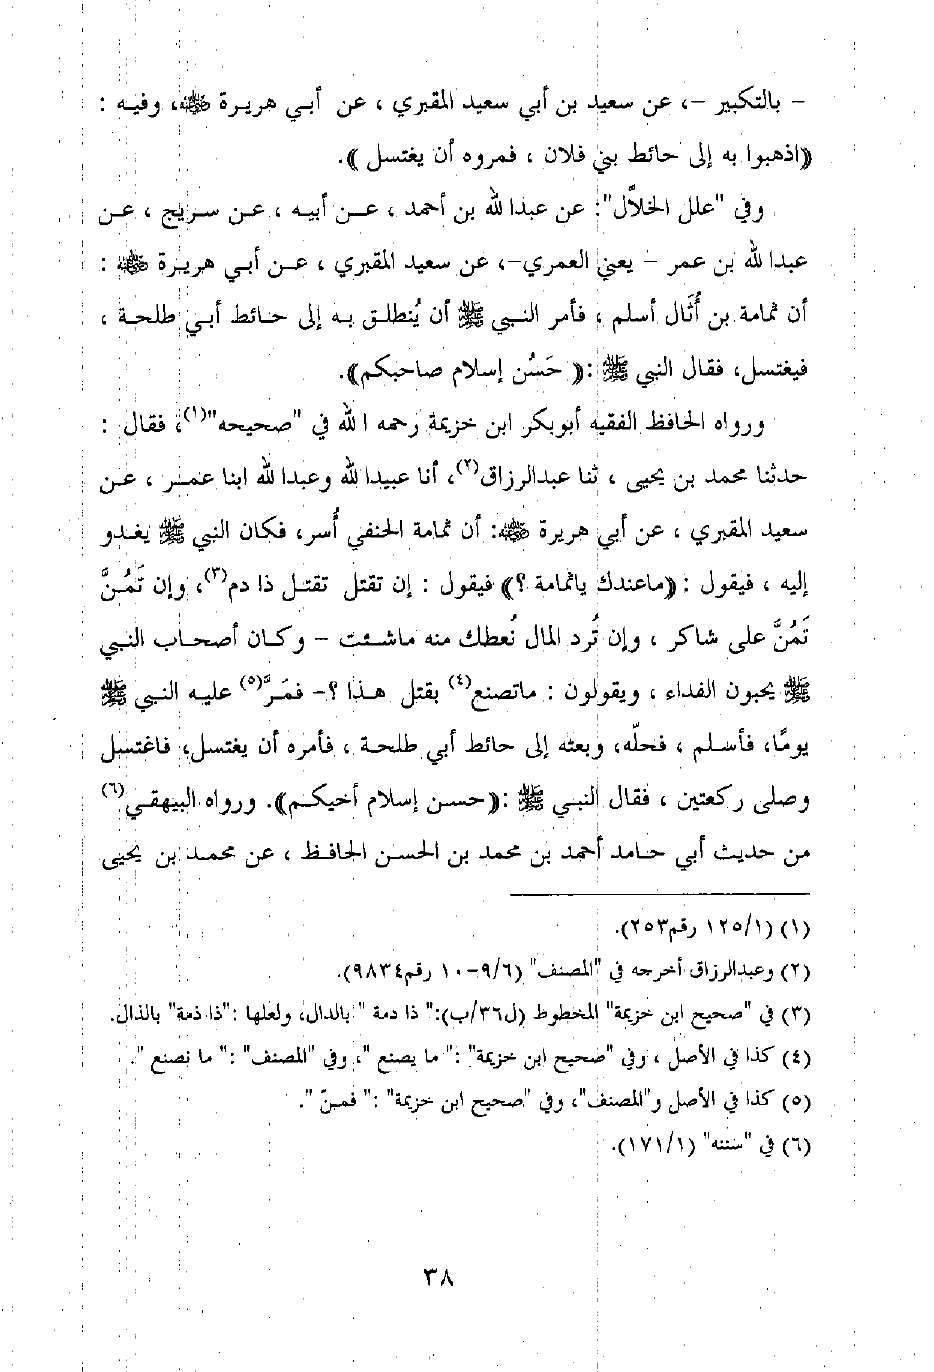 – بالتكبير –، عن سعيد بن أبي سعيد المقبري ، عن أبي هريرة ﵁، وفيه :
((اذهبوا به إلى حائط بني فلان ، فمروه أن يغتسل )).
وفي "علل الخلاّل": عن عبدالله بن أحمد ، عن أبيه ، عن سريج ، عن
عبدالله بن عمر – يعني العمري–، عن سعيد المقبري ، عن أبي هريرة ﵁ :
أن ثمامة بن أُثَال أسلم ، فأمر النبي ﷺ أن يُنطلق به إلى حائط أبي طلحة ،
فيغتسل، فقال النبي ﷺ :(( حَسُن إسلام صاحبكم)).
ورواه الحافظ الفقيه أبوبكر ابن خزيمة رحمه الله في "صحيحه"(١)، فقال :
حدثنا محمد بن يحيى ، ثنا عبدالرزاق(٢)، أنا عبيدالله وعبدالله ابنا عمر ، عن
سعيد المقبري ، عن أبي هريرة ﵁: أن ثمامة الحنفي أُسر، فكان النبي ﷺ يغدو
إليه ، فيقول :((ماعندك ياثمامة ؟)) فيقول : إن تقتل تقتل ذا دم(٣)، وإن تَمُنَّ
تَمُنَّ على شاكر ، وإن تُرد المال نُعطك منه ماشئت – وكان أصحاب النبي
ﷺ يحبون الفداء ، ويقولون : ماتصنع(٤) بقتل هذا ؟– فمَرَّ(٥) عليه النبي ﷺ
يومًا، فأسلم ، فحلّه، وبعثه إلى حائط أبي طلحة ، فأمره أن يغتسل، فاغتسل
وصلى ركعتين ، فقال النبي ﷺ :((حسن إسلام أخيكم)). ورواه البيهقي(٦)
من حديث أبي حامد أحمد بن محمد بن الحسن الحافظ ، عن محمد بن يحيى
(١) (١/١٢٥ رقم٢٥٣).
(٢) وعبدالرزاق أخرجه في "المصنف" (٦/٩–١٠ رقم٩٨٣٤).
(٣) في "صحيح ابن خزيمة" المخطوط (ل٣٦/ب):" ذا دمة "بالدال، ولعلها :"ذا ذمة" بالذال.
(٤) كذا في الأصل ، وفي "صحيح ابن خزيمة" :" ما يصنع "، وفي "المصنف" :" ما نصنع ".
(٥) كذا في الأصل و"المصنف"، وفي "صحيح ابن خزيمة" :" فمنّ ".
(٦) في "سننه" (١/١٧١).
٣٨